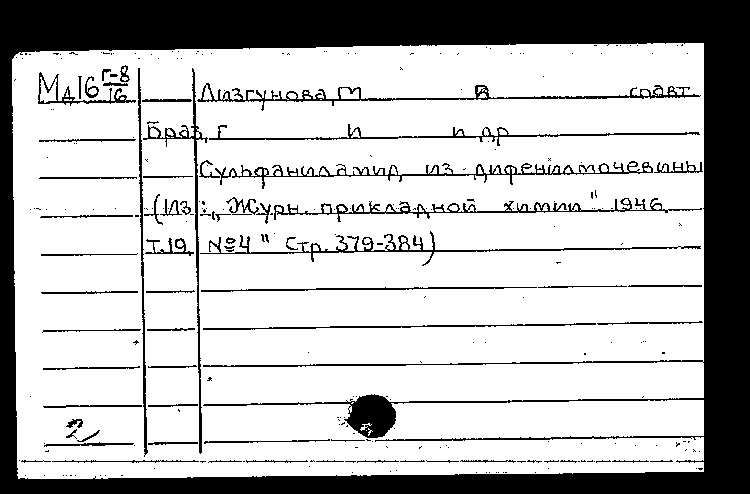 Мд16 Г-8/16
Лизгунова, М В соавт
Браз, Г И и др
Сульфаниламид из дифенилмочевины
(Из: „Журн. прикладной химии" 1946.
Т.19. №4 " Стр. 379-384)
2